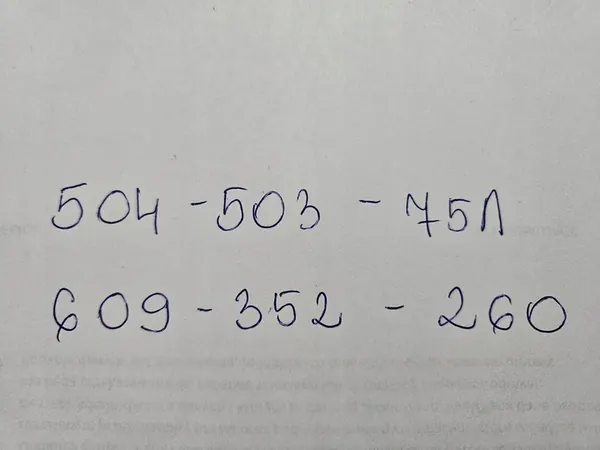 504 - 503 - 751
609 - 352 - 260